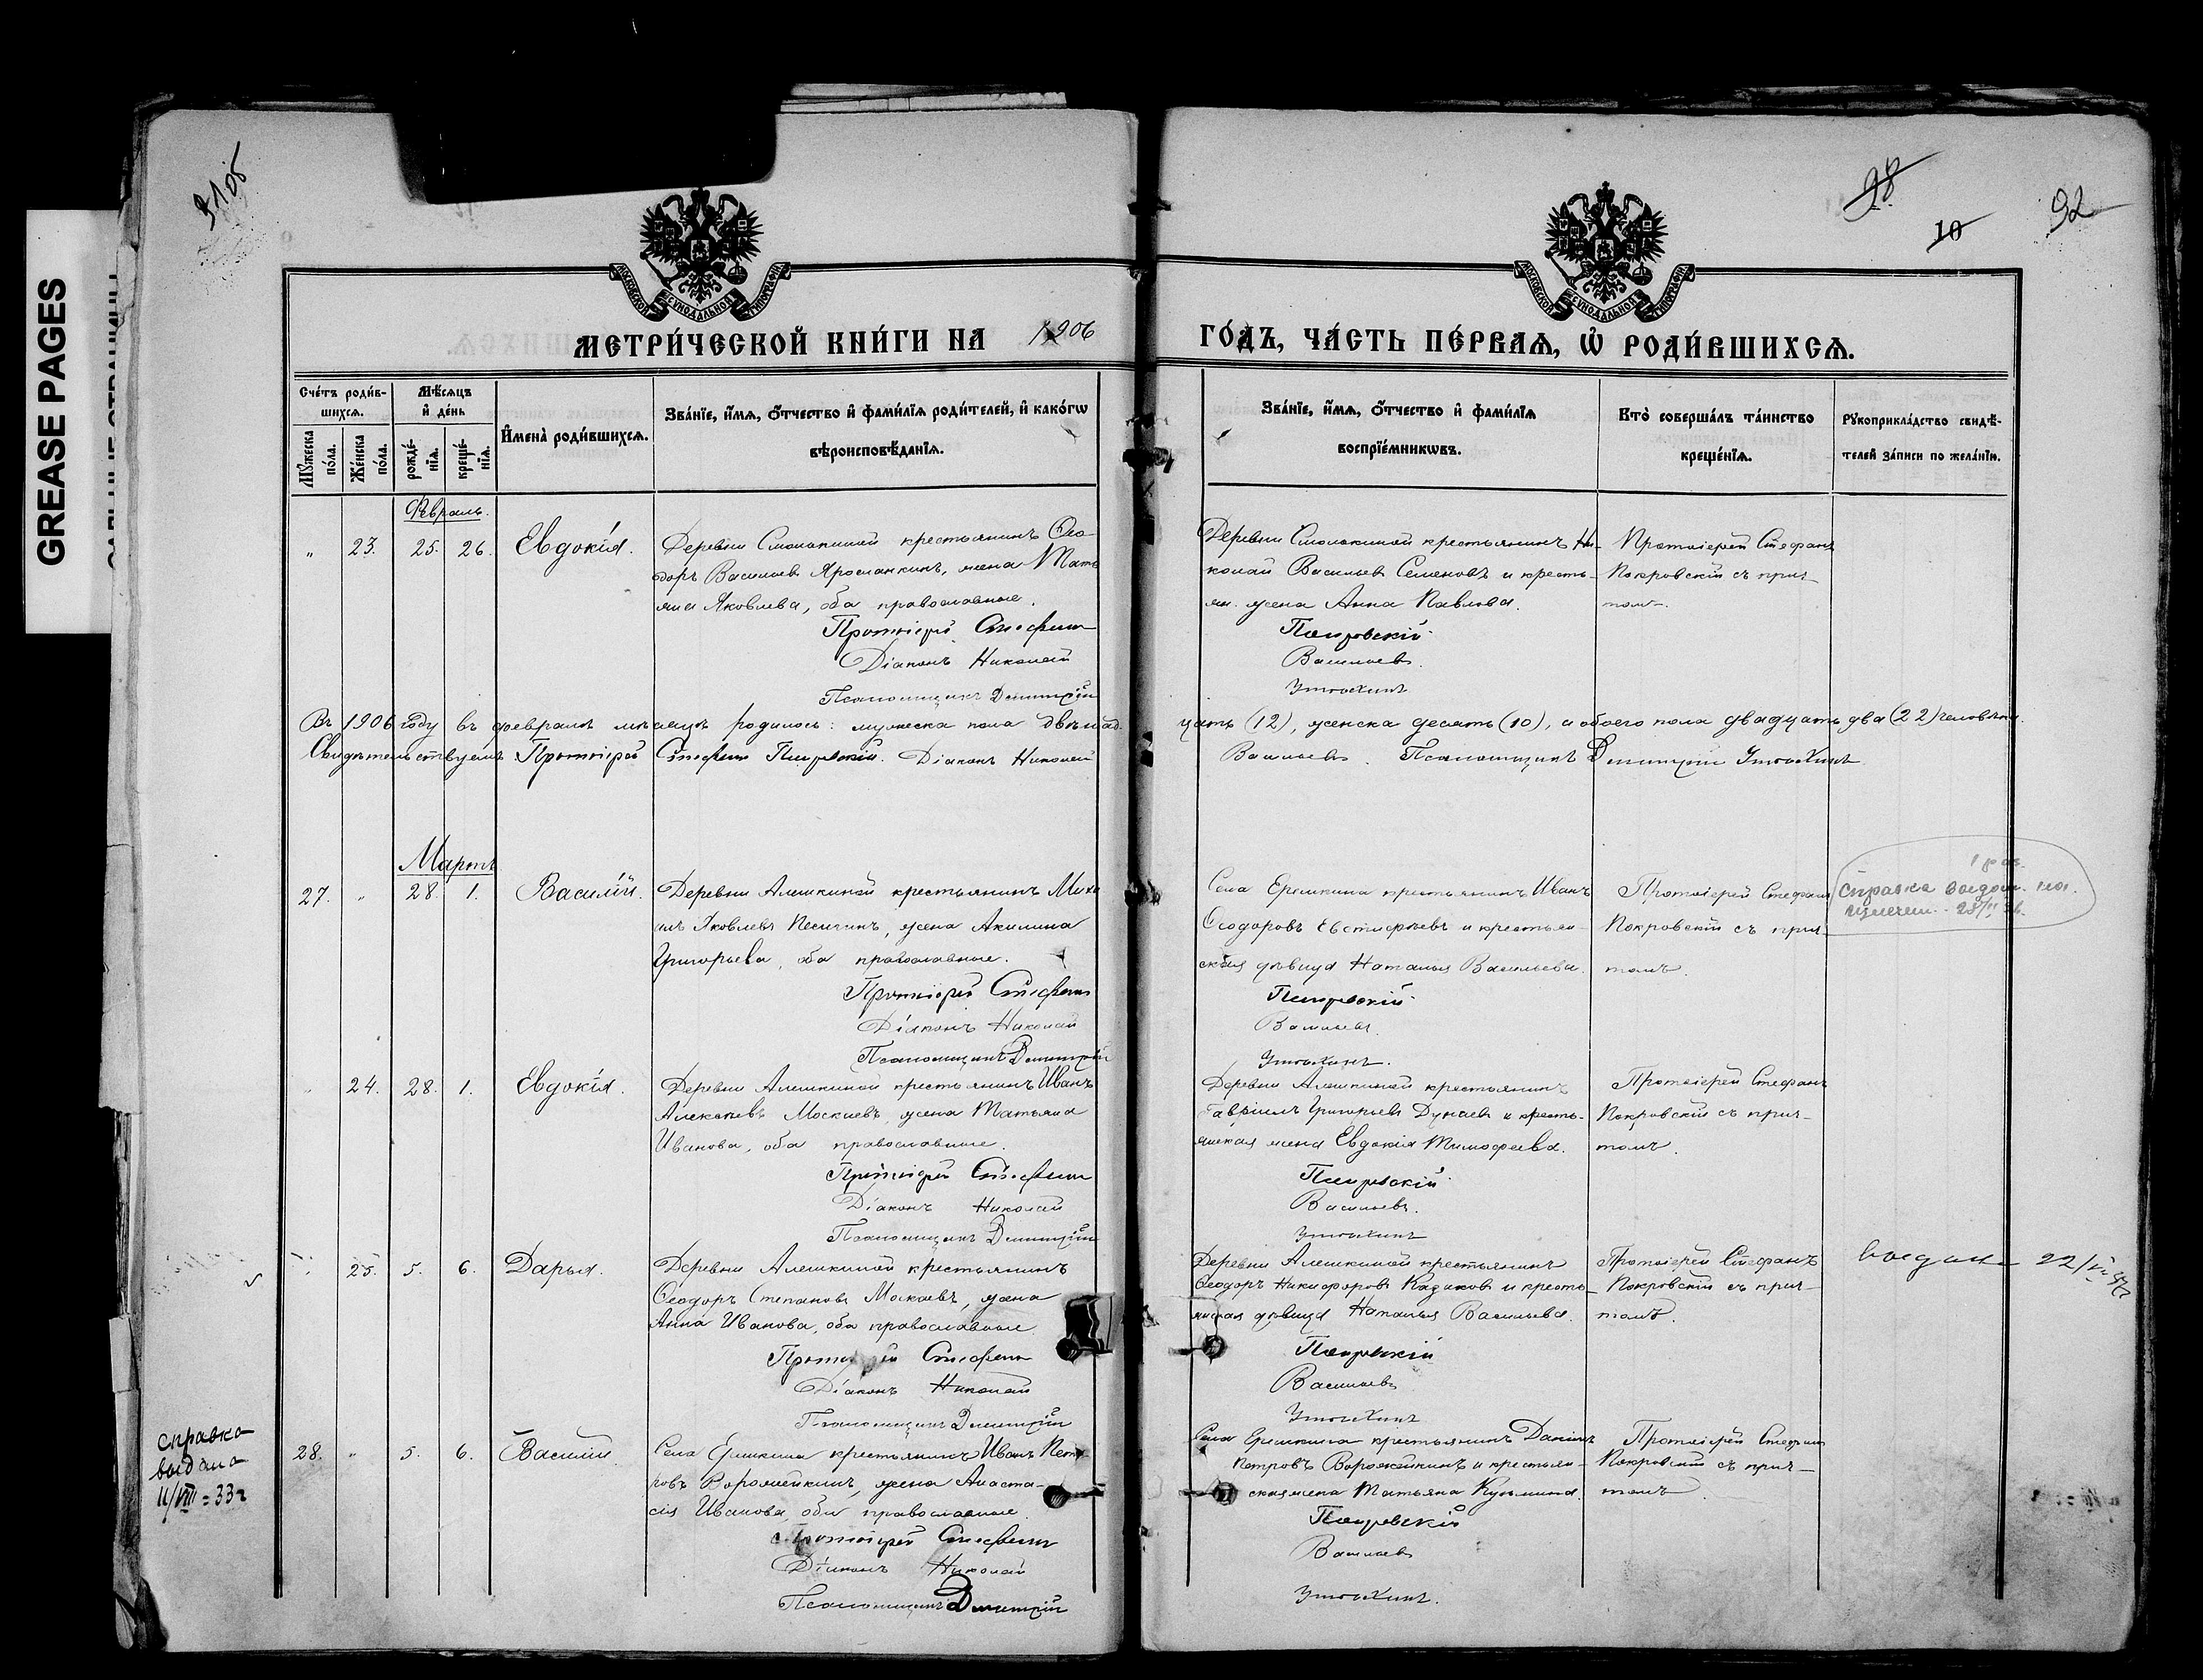 GREASE PAGES
91об
98
10
92
МОСКОВСКОЙ СѴНОДАЛЬНОЙ ТИПОГРАФІИ
МОСКОВСКОЙ СѴНОДАЛЬНОЙ ТИПОГРАФІИ
МЕТРИ́ЧЕСКОЙ КНИ́ГИ НА 1906
ГО́ДЪ, ЧА́СТЬ ПЕ́РВАѦ, Ѡ РОДИ́ВШИХСѦ.
Сче́тъ роди́в-
шихсѧ.
Мꙋ́жеска
по́ла.
Же́нска
по́ла.
Мѣ́сѧцъ
и҆ де́нь
рожде́-
нїѧ.
креще́-
нїѧ.
И҆мена̀ роди́вшихсѧ.
Зва́нїе, и҆́мѧ, ѻ҆́тчество и҆ фами́лїѧ роди́телей, и҆ како́гѡ
вѣроисповѣ́данїѧ.
Зва́нїе, и҆́мѧ, ѻ҆́тчество и҆ фами́лїѧ
воспрїе́мникѡвъ.
Кто̀ соверша́лъ та́инство
креще́нїѧ.
Рꙋкоприкла́дство свидѣ́-
телей за́писи по жела́нїю.
Февраль.
" 23. 25. 26. Евдокія.
Деревни Смолькиной крестьянинъ Ѳео-
доръ Васильевъ Ярославкинъ, жена Тать
яна Яковлева, оба православные.
Протоіерей Стефанъ
Діаконъ Николай
Псаломщикъ Димитрій
Деревни Смолькиной крестьянинъ Ни-
колай Васильевъ Семеновъ и кресть-
ян. жена Анна Павлова.
Покровскій
Васильевъ.
Протоіерей Стефанъ
Покровскій съ прич-
томъ.
Въ 1906 году въ февралѣ мѣсяцѣ родилось: мужеска пола двѣнад-
цать (12), женска десять (10), а обоего пола двадцать два (22) человѣка.
Свидѣтельствуемъ: Протоіерей Стефанъ Покровскій. Діаконъ Николай
Васильевъ. Псаломщикъ Димитрій
Мартъ
27. " 28. 1. Василій.
Деревни Алешкиной крестьянинъ Миха
илъ Яковлевъ жена Акилина
Григорьева, оба православные.
Протоіерей Стефанъ
Діаконъ Николай
Псаломщикъ Димитрій
Села Ерёмкина крестьянинъ Иванъ
Ѳеодоровъ Евстифѣевъ и крестьян-
ская дѣвица Наталья Васильева.
Покровскій
Васильевъ.
Протоіерей Стефанъ
Покровскій съ прич-
томъ.
справка
" 24. 28. 1. Евдокія.
Деревни Алешкиной крестьянинъ Иванъ
Алексѣевъ Москаевъ, жена Татьяна
Иванова, оба православные.
Протоіерей Стефанъ
Діаконъ Николай
Псаломщикъ Димитрій
Деревни Алешкиной крестьянинъ
Гавріилъ Григорьевъ Дунаевъ и кресть-
янская жена Евдокія Тимофеева.
Покровскій
Васильевъ.
Протоіерей Стефанъ
Покровскій съ прич-
томъ.
" 25. 5. 6. Дарья.
Деревни Алешкиной крестьянинъ
Ѳеодоръ Степановъ Москаевъ, жена
Анна Иванова, оба православные
Протоіерей Стефанъ
Діаконъ Николай
Псаломщикъ Димитрій
Деревни Алешкиной крестьянинъ
Ѳеодоръ Никифоровъ Казаковъ и кресть-
янская дѣвица Наталья Васильева.
Покровскій
Васильевъ
Протоіерей Стефанъ
Покровскій съ прич-
томъ.
справка
выдана
11/VIII=33г
28. " 5. 6. Василій
Села Ерёмкина крестьянинъ Иванъ Пет-
ровъ Ворожейкинъ, жена Анаста-
сія Иванова, оба православные.
Протоіерей Стефанъ
Діаконъ Николай
Псаломщикъ Димитрій
Села Ерёмкина крестьянинъ Даніилъ
Петровъ Ворожейкинъ и крестьян-
ская жена Татьяна Кузьмина.
Покровскій
Васильевъ
Протоіерей Стефанъ
Покровскій съ прич-
томъ